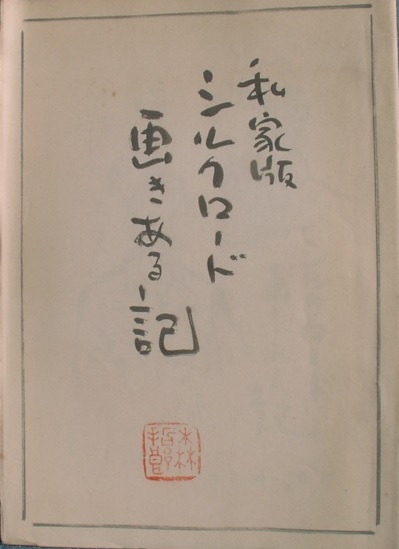 私家版
シルクロード
画きある記
森哲郎